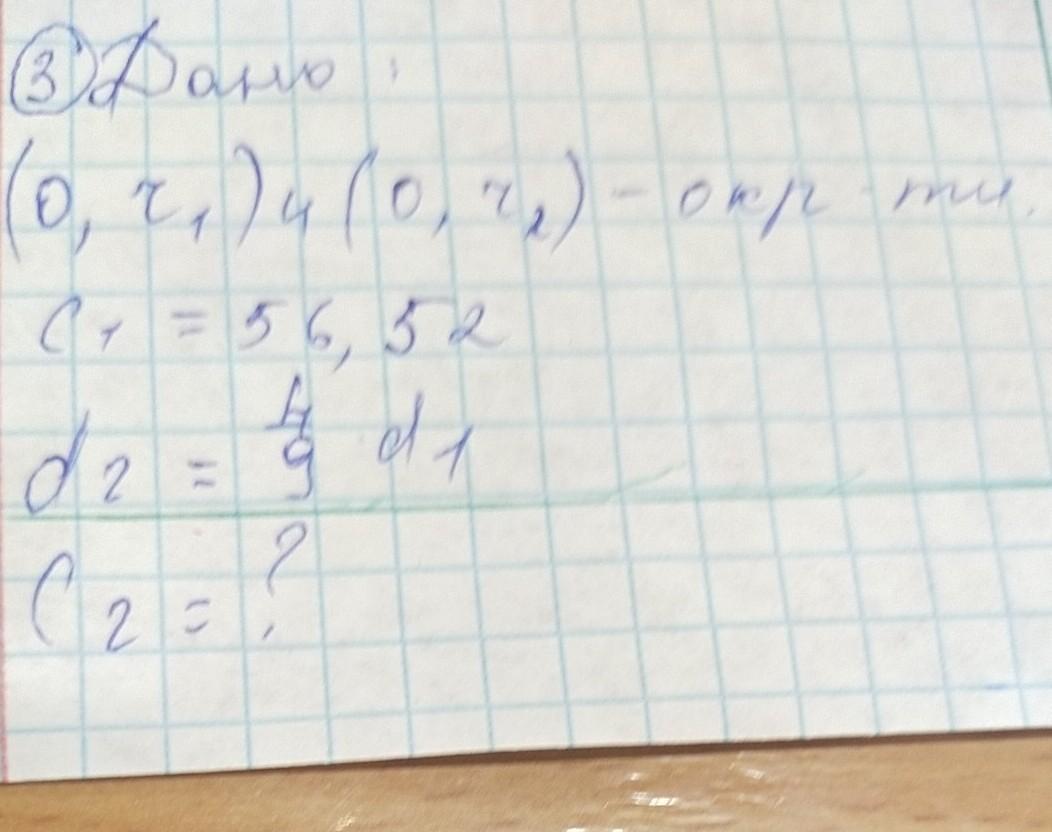 ③ Дано:
(O, r₁) и (O, r₂) - окр-ти.
C₁ = 56,52
d₂ = 4/9 d₁
C₂ = ?